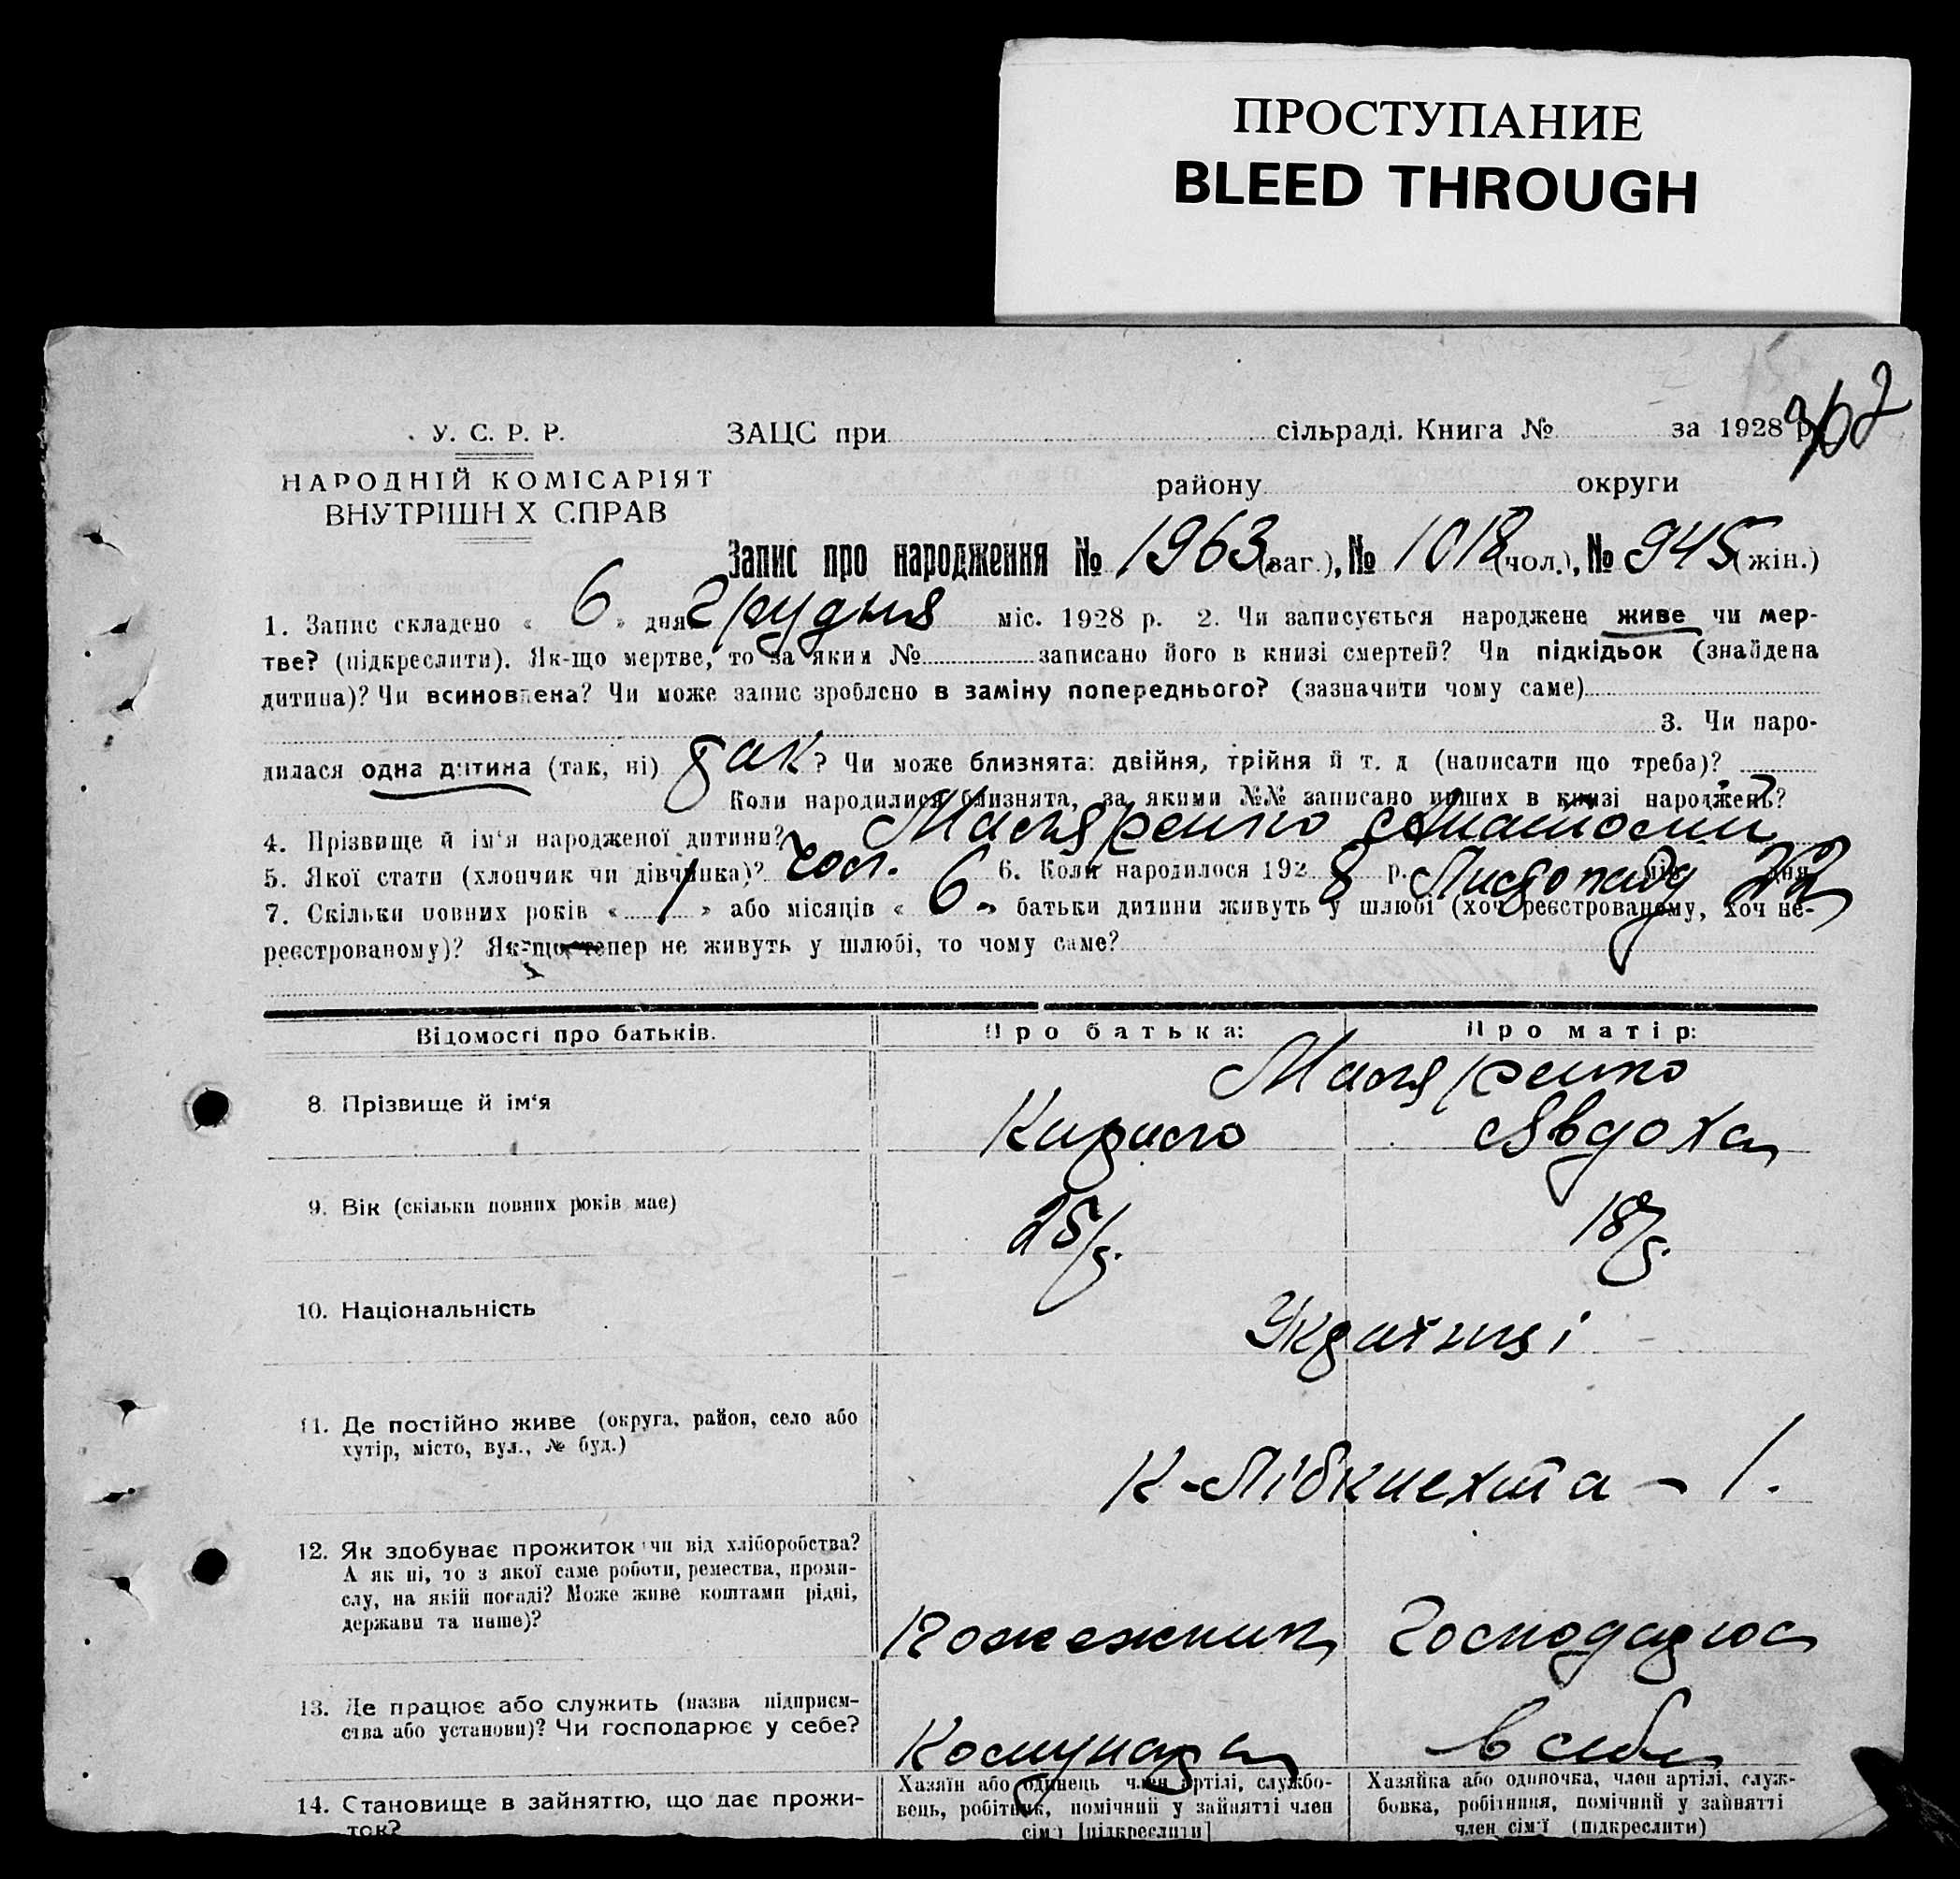 ПРОСТУПАНИЕ
BLEED THROUGH
У. С. Р. Р.
НАРОДНІЙ КОМІСАРІЯТ
ВНУТРІШН Х СПРАВ
ЗАЦС при сільраді. Книга № за 1928 р.
району округи
Запис про народження № 1963 (заг.), № 1018 (чол.), № 945 (жін.)
1. Запис складено « 6 » дня Грудня міс. 1928 р. 2. Чи записується народжене живе чи мер-
тве? (підкреслити). Як-що мертве, то за яким № записано його в книзі смертей? Чи підкідьок (знайдена
дитина)? Чи всиновлена? Чи може запис зроблено в заміну попереднього? (зазначити чому саме)
3. Чи наро-
дилася одна дитина (так, ні) так ? Чи може близнята: двійня, трійня й т. д (написати що треба)?
Коли народилися близнята, за якими №№ записано инших в книзі народжень?
4. Прізвище й ім'я народженої дитини? Маляренко Анатолій
5. Якої стати (хлопчик чи дівчинка)? чол. 6. Коли народилося 1928 р. Листопаду міс. 22 дня
7. Скільки повних років « 1 » або місяців « 6 » батьки дитини живуть у шлюбі (хоч реєстрованому, хоч не-
реєстрованому)? Як-що тепер не живуть у шлюбі, то чому саме?
Відомості про батьків. Про батька: Про матір:
Маляренко
8. Прізвище й ім'я Кирило Явдоха
9. Вік (скільки повних років має) 25/р. 18/р.
10. Національність Українці
11. Де постійно живе (округа, район, село або
хутір, місто, вул., № буд.)
К-Лібкнехта - 1.
12. Як здобуває прожиток чи від хліборобства?
А як ні, то з якої саме роботи, ремества, проми-
слу, на якій посаді? Може живе коштами рідні,
держави та инше)?
Пожежник Господарює
13. Де працює або служить (назва підприєм-
ства або установи)? Чи господарює у себе?
в себе
14. Становище в зайняттю, що дає прожи-
ток?
Хазяїн або одинець член артілі, службо-
вець, робітник, помічний у зайнятті член
сім'ї [підкреслити]
Хазяйка або одиночка, член артілі, служ-
бовка, робітниця, помічний у зайнятті
член сім'ї (підкреслити)